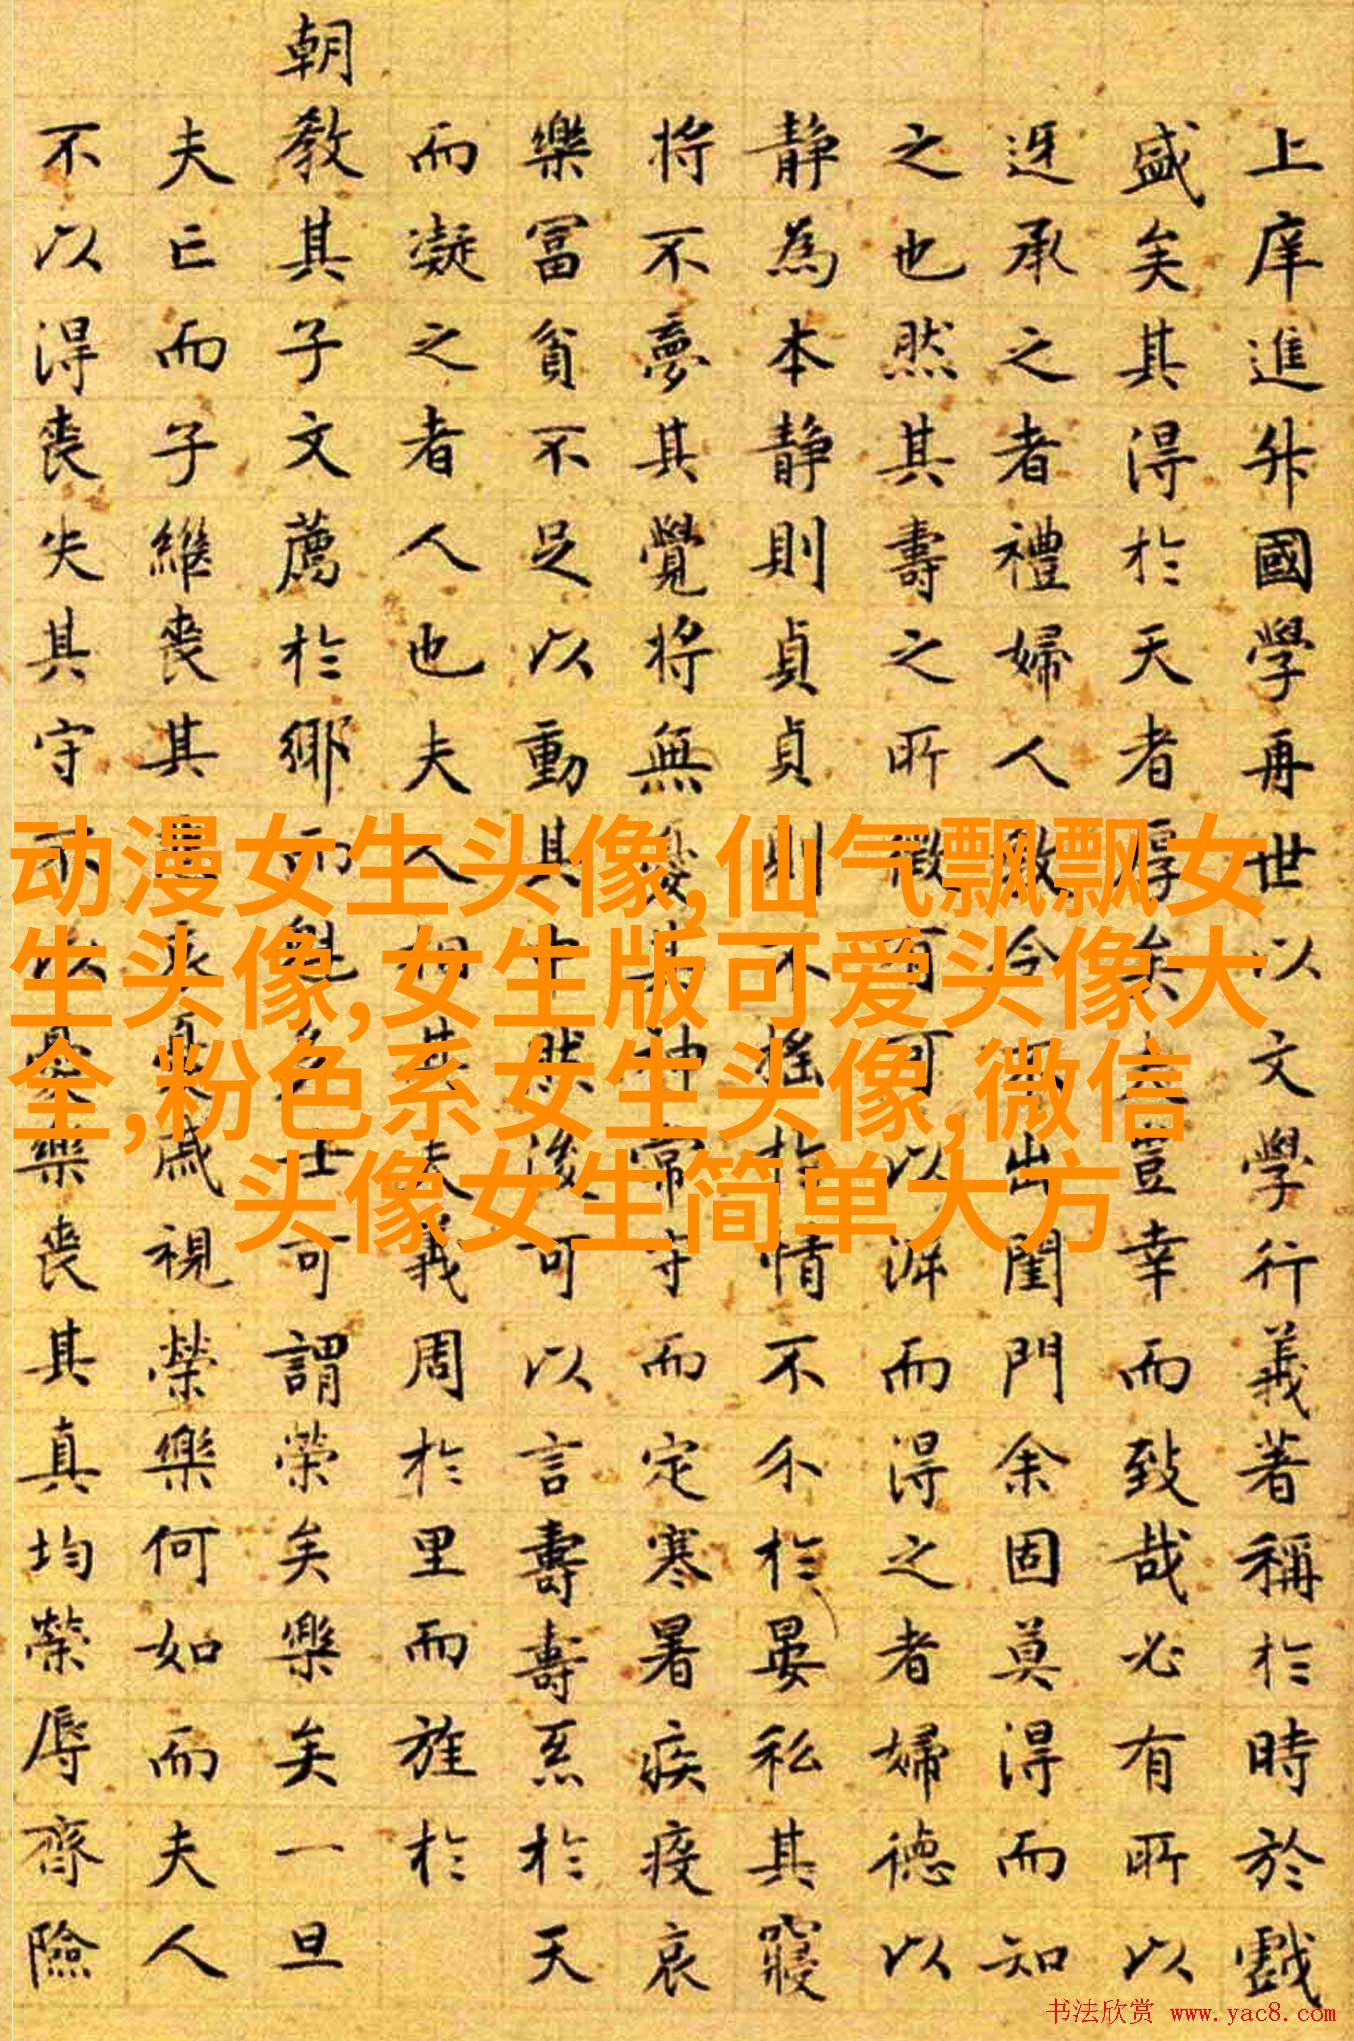 上庠進升國學再世以文學行義著稱於時於戲
盛矣其得於天者厚矣夫豈幸而致哉必有所以
迓承之者禮婦人教令不出閨門余固莫得而知
之也然其壽之所徵有可以涯而得之者婦德以
静為本静則貞貞則不搖於情不尒於晏私其寢
將不夢其覺將無憂其神常守而定寒暑疾疫哀
樂冨貧不足以動其中然後可以言壽壽系於天
而凝之者人也夫人相其夫義周於里而旌於
朝教其子文薦於鄉而魁多士可謂榮矣樂矣一旦
夫亡而子継喪其長戚視榮樂何如而夫人
不以得喪失其守不以榮樂喪其真均榮辱齊險
动漫女生头像,仙气飘飘女
生头像,女生版可爱头像大
全,粉色系女生头像,微信
头像女生简单大方
书法欣赏 www.yac8.com